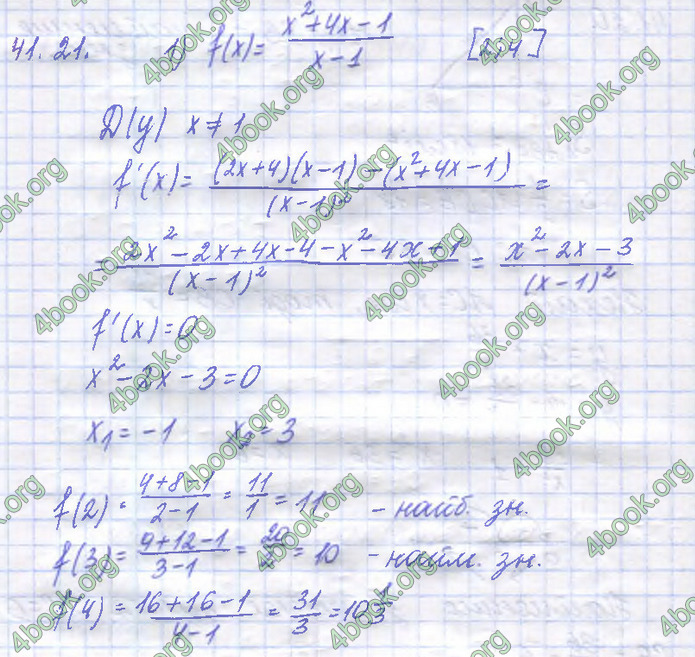 41.21. 1) f(x) = (x² + 4x - 1)/(x - 1) [2; 4]
D(y) x ≠ 1
f'(x) = ((2x+4)(x-1) - (x² + 4x - 1))/(x-1)² =
= (2x² - 2x + 4x - 4 - x² - 4x + 1)/(x-1)² = (x² - 2x - 3)/(x-1)²
f'(x) = 0
x² - 2x - 3 = 0
x₁ = -1 x₂ = 3
f(2) = (4+8-1)/(2-1) = 11/1 = 11 - наиб. зн.
f(3) = (9+12-1)/(3-1) = 20/2 = 10 - наим. зн.
f(4) = (16+16-1)/(4-1) = 31/3 = 10 1/3
4book.org